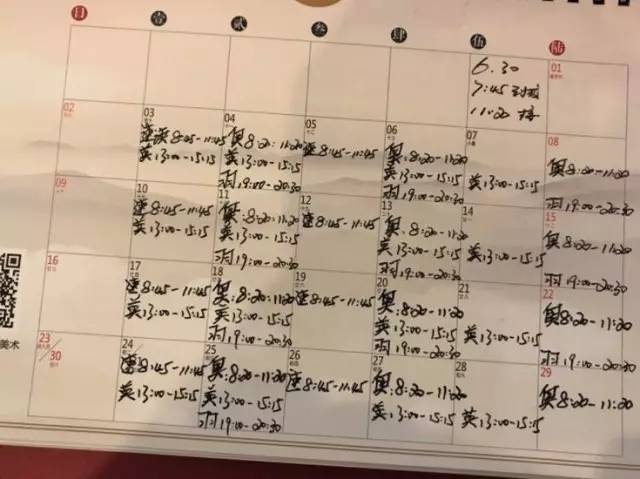 日 壹 貳 叁 肆 伍 陆
6.30
7:45 到校
11:20 接
01
02
03
速
8:45-11:45
英13:00-15:15
04
奥8:20-11:20
英13:00-15:15
羽19:00-20:30
05
速8:45-11:45
06
奥8:20-11:20
英13:00-15:15
羽19:00-20:30
07
英13:00-15:15
08
奥8:20-11:20
羽19:00-20:30
09
10
速8:45-11:45
英13:00-15:15
11
奥:8:20-11:20
英13:00-15:15
羽19:00-20:30
12
速8:45-11:45
13
奥:8:20-11:20
英13:00-15:15
羽19:00-20:30
14
英13:00-15:15
15
奥8:20-11:20
羽19:00-20:30
16
17
速8:45-11:45
英13:00-15:15
18
奥:8:20-11:20
英13:00-15:15
羽19:00-20:30
19
速8:45-11:45
20
奥:8:20-11:20
英13:00-15:15
羽19:00-20:30
21
英13:00-15:15
22
奥8:20-11:20
羽19:00-20:30
美术
23/30
24
速8:45-11:45
英13:00-15:15
25
奥:8:20-11:20
英13:00-15:15
羽19:00-20:30
26
速8:45-11:45
27
奥:8:20-11:20
英13:00-15:15
28
英13:00-15:15
29
奥8:20-11:20